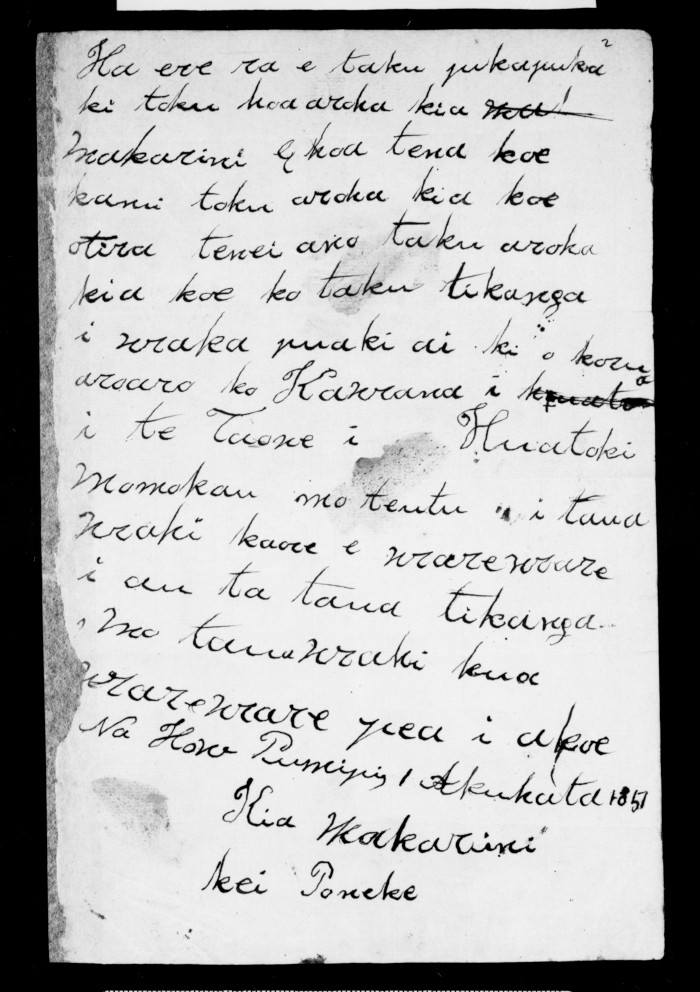 Ha ere ra e taku pukapuka
ki toku hoa aroha kia
Makarini E hoa tena koe
kanui toku aroha kia koe
otira tenei ano taku aroha
kia koe ko taku tikanga
i whaka puaki ai ki o korua
aroaro ko Kawana i
i te Taone i Huatoki
mo te utu i taua
whaki kaore e warewware
i au ta taua tikanga
mo taua whaki kua
warewware pea i a koe
Na Hone 1 Akuhata 1851
Kia Makarini
kei Poneke